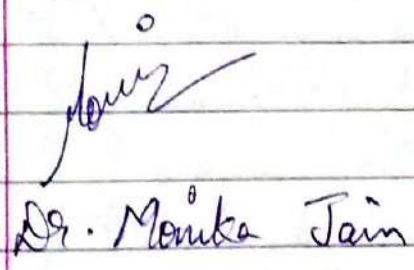 Dr. Monika Jain